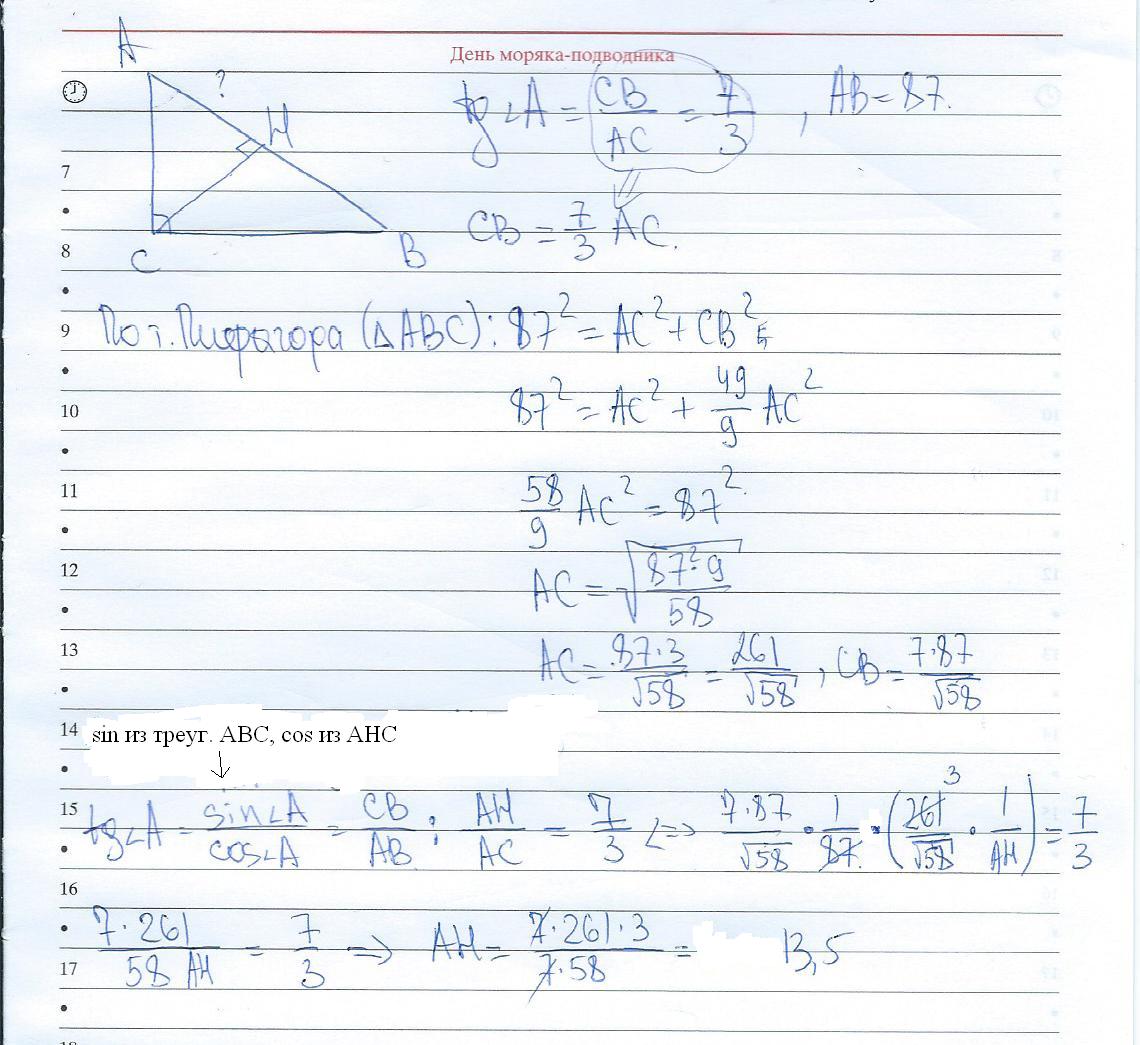 День моряка-подводника
A
?
H
C
B
tg∠A = CB/AC = 7/3 , AB = 87.
7
CB = 7/3 AC.
8
9
По т. Пифагора (△ABC): 87² = AC² + CB²
10
87² = AC² + 49/9 AC²
11
58/9 AC² = 87².
12
AC = √(87²·9/58)
13
AC = 87·3/√58 = 261/√58 , CB = 7·87/√58
14
sin из треуг. ABC, cos из AHC
15
tg∠A = sin∠A/cos∠A = CB/AB : AH/AC = 7/3 <=> 7·87/√58 · 1/87 · (261/√58 · 1/AH) = 7/3
3
16
7·261/58 AH = 7/3 => AH = 7·261·3/7·58 = 13,5
17